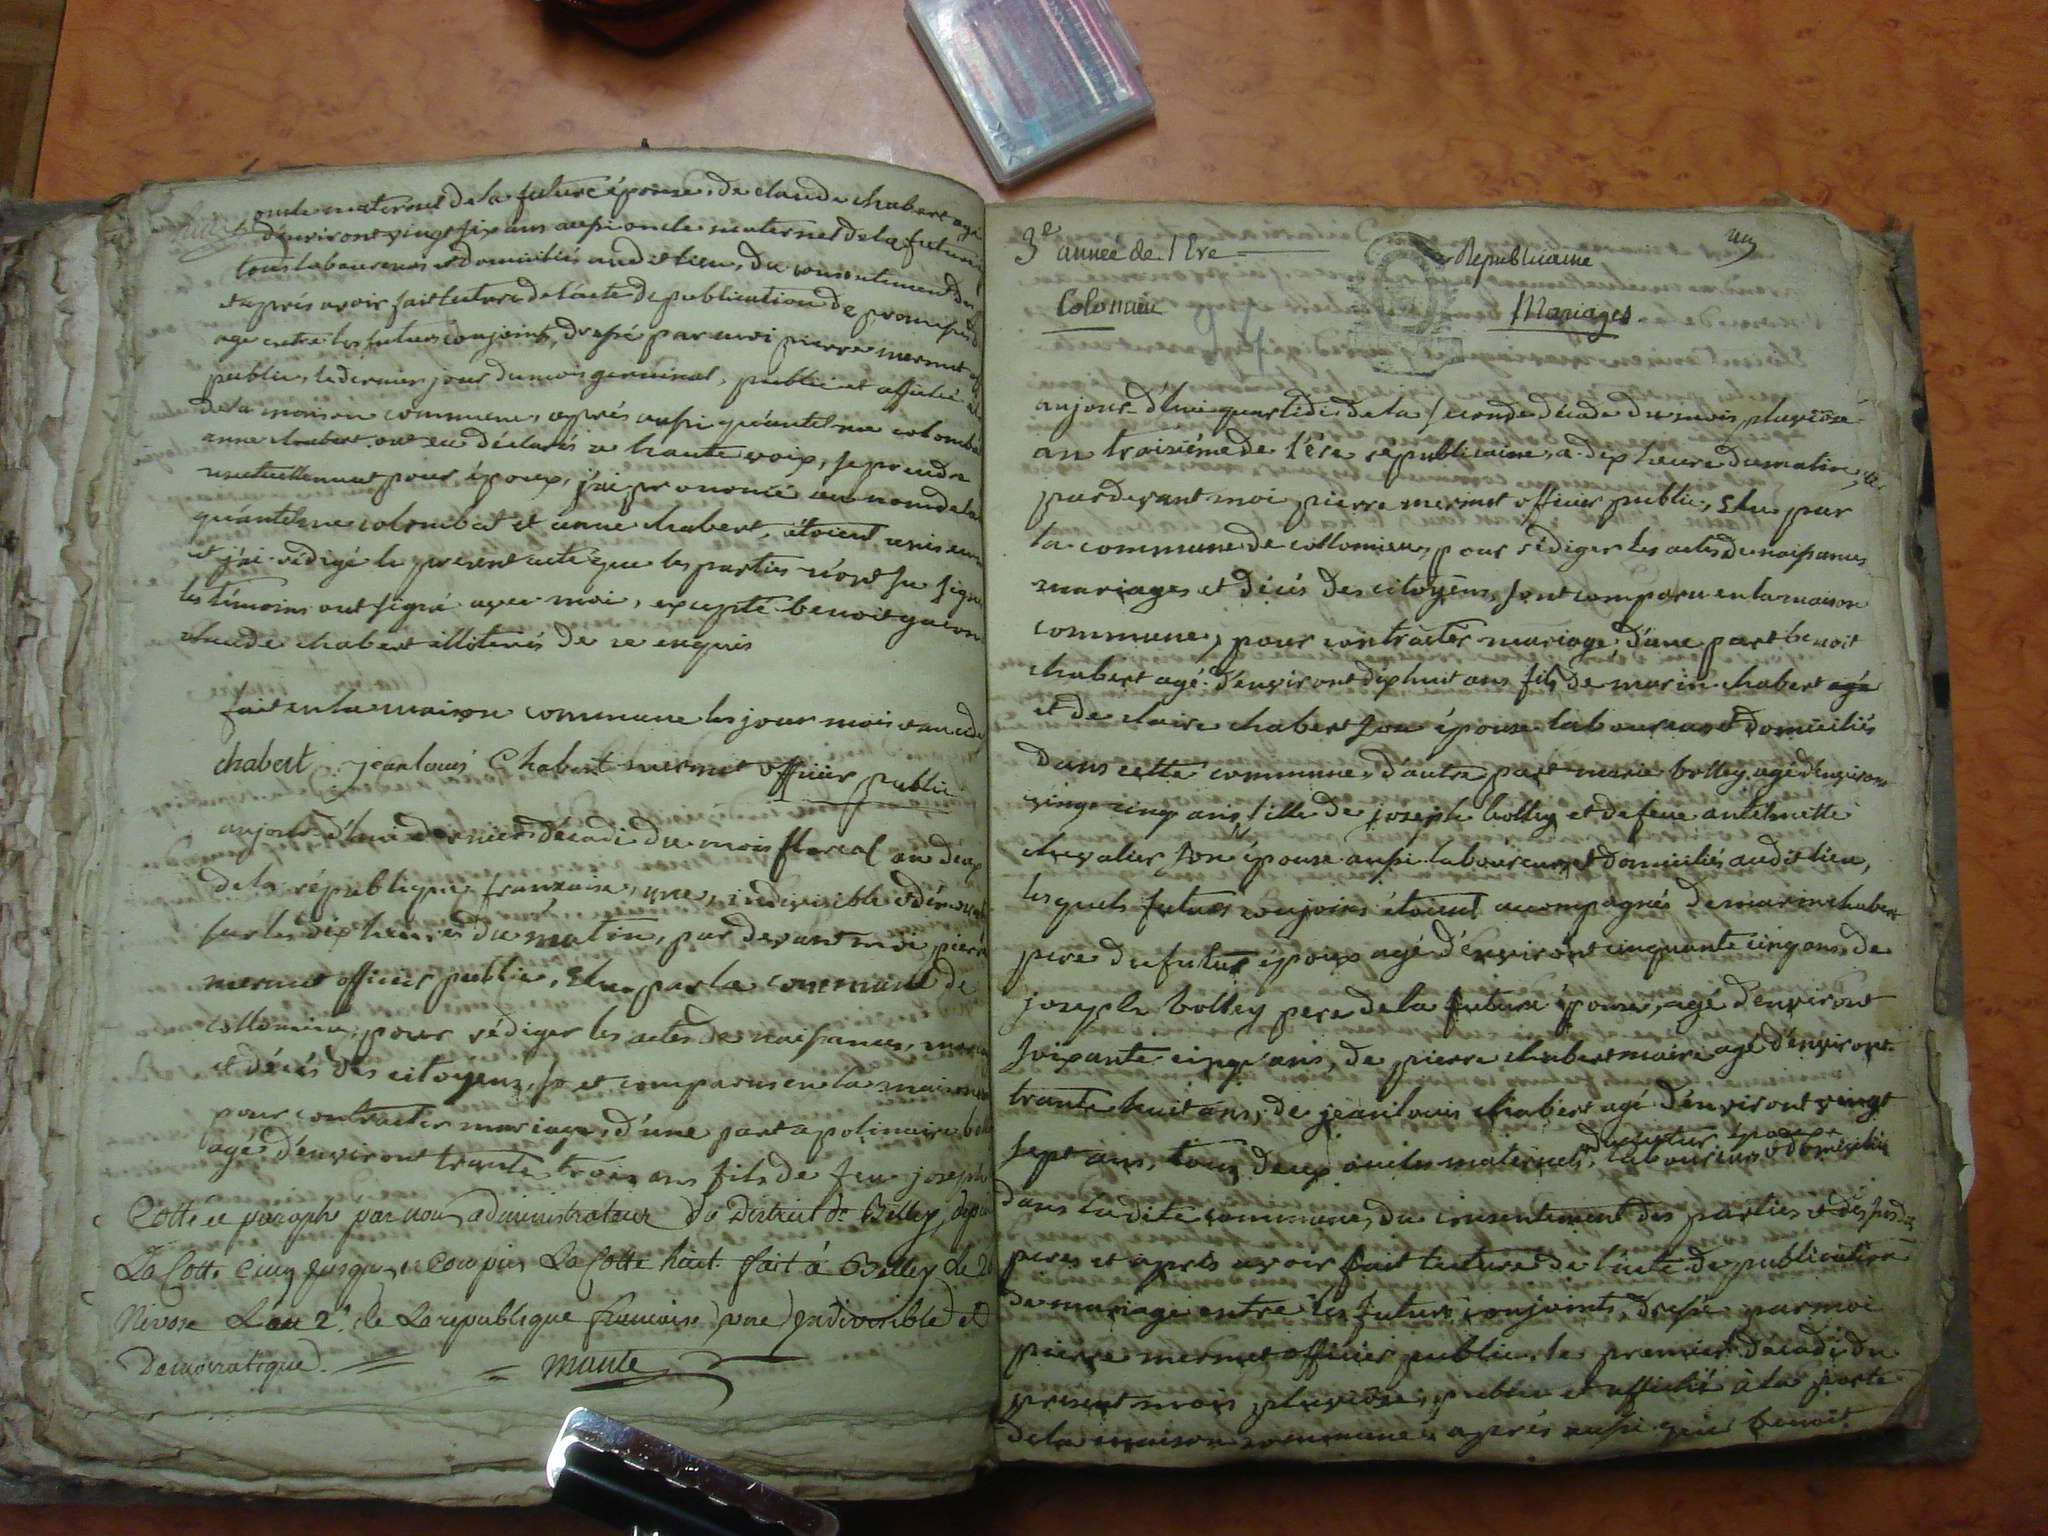 oncle maternel de la future épouse, de claude chabert agé
d'environt vingt six ans aussi oncle maternel de la future
tous laboureurs et domiciliés audit lieu, du consentement des
et après avoir fait lecture de l'acte de publication de promesse
age entre les futurs conjoints, dressé par moi pierre mermet of
public, le dernier jour du mois germinal, publié et affiché
de la maison commune, après aussi qu'antelme colombat
anne chabert ont eu déclarés a haute voix, se prendre
mutuellement pour époux, j'ai prononcé au nom de la
qu'antelme colombat et anne chabert, étoient unis en
et j'ai rédigé le present acte que les parties n'ont su signer
les témoins ont signé avec moi, excepté benoit gacon
claude chabert illiterés de ce enquis
fait en la maison commune les jour mois et an
chabert jean louis Chabert mermet officier public
aujourd'hui dernier décadi du mois floreal an deux
de la république francaise, une, indivisible
sur les dix heures du matin, par devant moi pierre
mermet officier public, Elu par la commune de
collomieu, pour rédiger les actes de naissances,
et décés des citoyens, so et comparus en la maison
pour contracter mariage, d'une part apolinaire
agé d'environt trante trois ans fils de feu joseph
Cotté et paraphé par nous administrateur du District de Belley, depuis
La Cotte Cinq jusques et compris La Cotte huit fait à Belley le
Nivose L'an 2e. de La republique francaise, une, indivisible et
Democratique. Maute
3e année de l'Ere Republicaine
Colomieu Mariages.
aujourd'hui quartidi de la seconde décade du mois pluviôse
an troisième de l'ére républicaine, a dix heure du matin,
pardevant moi pierre mermet officier public, Elu par
la commune de collomieu, pour rédiger les actes de naissances
mariages et décés des citoyens, sont comparu en la maison
commune, pour contracter mariage, d'une part benoit
chabert agé d'environt dix huit ans fils de marin chabert agé
et de claire chabert son épouse laboureurs et domiciliés
dans cette commune, d'autre part marie bolley agé d'environt
vingt cinq ans, fille de joseph bolley et de feue antelmette
chevalier son épouse aussi laboureurs et domiciliés audit lieu,
lesquels futurs conjoins étoient accompagnés de marin chabert
pere du futur époux agé d'environt cinquante cinq ans, de
joseph bolley pere de la future épouse, agé d'environt
soixante cinq ans, de pierre chabert maire agé d'environt
trante huit ans, de jean louis chabert agé d'environt vingt
du futur epoux
sept ans, tous deux oncles maternels, laboureurs et domiciliés
dans ladite commune, du consentement des parties et des
peres et après avoir fait lecture de l'acte de publication
de mariage entre les futurs conjoints, dressé par moi
pierre mermet officier public, le premier décadi du
present mois pluviôse, publié et affiché a la porte
de la maison commune, après aussi que benoit